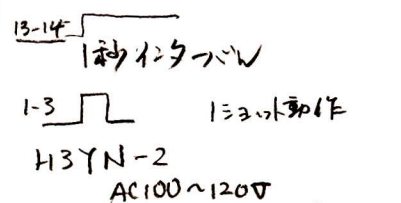 13-14
1秒インターバル
1-3 1ショット動作
H3YN-2
AC100~120V